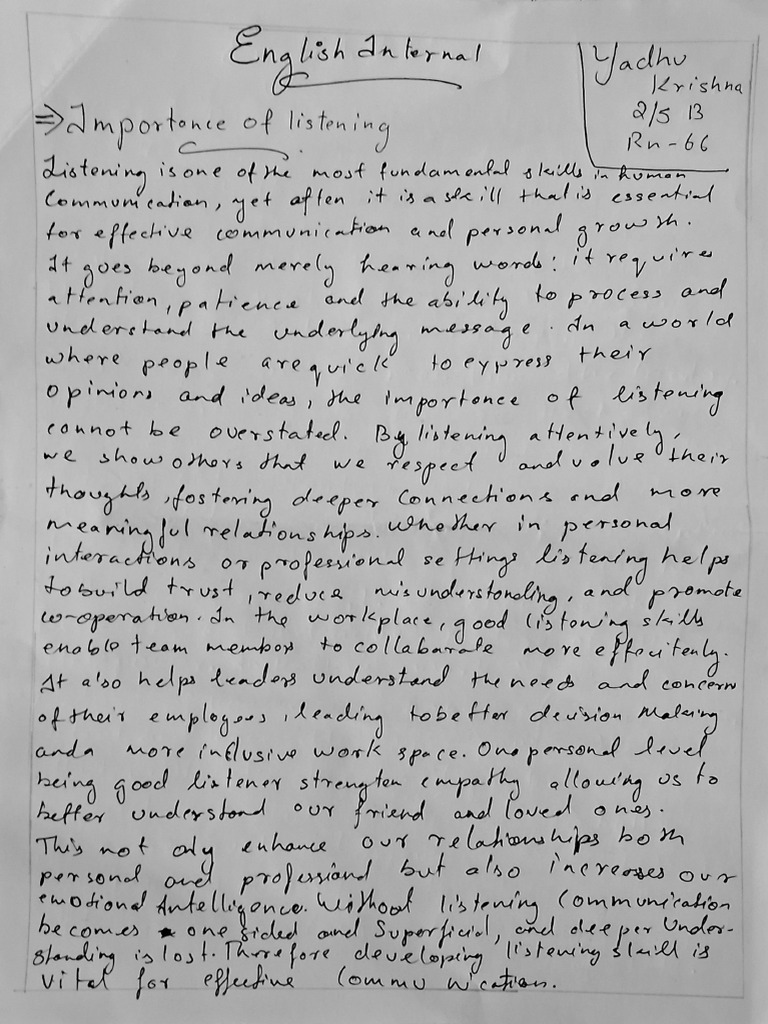 English Internal
Yadhu
Krishna
2/5 B
Rn-66
⇒ Importance of listening
Listening is one of the most fundamental skills in human
Communication, yet aften it is a skill that is essential
for effective communication and personal growth.
It goes beyond merely hearing words: it requires
attention, patience and the ability to process and
understand the underlying message. In a world
where people are quick to express their
opinions and ideas, the importance of listening
cannot be overstated. By listening attentively,
we show others that we respect and value their
thoughts, fostering deeper connections and more
meaningful relationships. Whether in personal
interactions or professional settings listening helps
to build trust, reduce misunderstanding, and promote
co-operation. In the workplace, good listening skills
enable team members to collabarate more effecitenly.
It also helps leaders understand the needs and concern
of their employees, leading to better decision making
and a more inclusive work space. On a personal level
being good listener strengten empathy allowing us to
better understand our friend and loved ones.
This not only enhance our relationships both
personal and professional but also increases our
emotional Intelligence. Without listening Communication
becomes one sided and Superficial, and deeper Under-
standing is lost. Therefore developing listening skill is
vital for effective Communication.